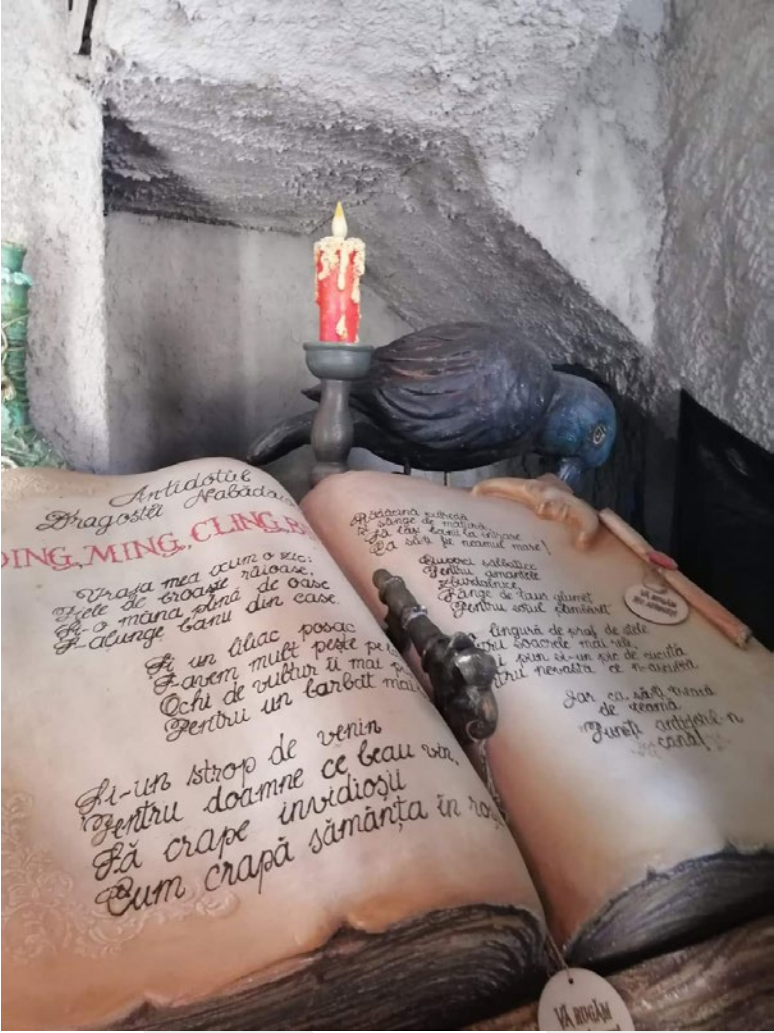 Antidotul
Dragostei Năbădăi
DING, MING, CLING, B
Vraja mea acum o zic:
Piele de broaște râioase,
Și-o mâna plină de oase
S-alunge banu din case.
Și un liliac posac
S-avem mult pește pe
Ochi de vultur îi mai
Pentru un barbat mai
Și-un strop de venin
Pentru doamne ce beau vin,
Să crape invidioșii
Cum crapă sămânța în
Rădăcină putredă
și sânge de mătură
Să lași banu la intrare
Ca să-ți fie neamul mare!
Ciuperci sălbatice
Pentru amantele
zburdalnice
Sânge de taur
Pentru soțul
lingură de praf de stele
soacrele mai rele,
pun și-un pic de cucută
nevasta ce n-ascultă
Iar ca să-ți treacă
de teamă
cană!
VĂ RUGĂM
NU ATINGEȚI
VĂ RUGĂM